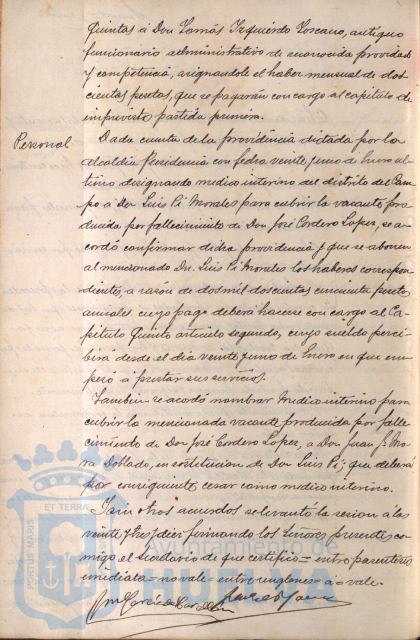 Quintas á Don Tomás Izquierdo Toscano, antiguo
funcionario administrativo de reconocida providad
y competencia, asignandole el haber mensual de dos
cientas pesetas, que se pagarán con cargo al capitulo de
imprevistos partida primera.
Personal
Dada cuenta de la providencia dictada por la
Alcaldia Presidencia con fecha veinte y uno de Enero ul-
timo designando medico interino del distrito del Cam-
po á Don Luis Pi Morales para cubrir la vacante pro
ducida por fallecimiento de Don José Cordero Lopez, se a-
cordó confirmar dicha providencia y que se abonen
al mencionado Dn. Luis Pi Morales los haberes correspon-
dientes, a razon de dos mil doscientas cincuenta pesetas
anuales cuyo pago deberá hacerse con cargo al Ca-
pitulo Quinto articulo segundo, cuyo sueldo perci-
birá desde el dia veinte y uno de Enero en que em-
pezó á prestar sus servicios.
Tambien se acordó nombrar Medico interino para
cubrir la mencionada vacante producida por falle
cimiento de Don José Cordero Lopez, a Don Juan J. Mo
ra Doblado, en sustitucion de Don Luis Pi; que deberá
por consiguiente cesar como medico interino.
Y sin otros acuerdos se levantó la sesion á las
veinte y tres diez firmando los Señores presentes con
migo el Secretario de que certifico = entre parentesis
inmediata = no vale = entre renglones = á = vale.
PORTUS MARIS ET TERRAE
Ayuntamiento de